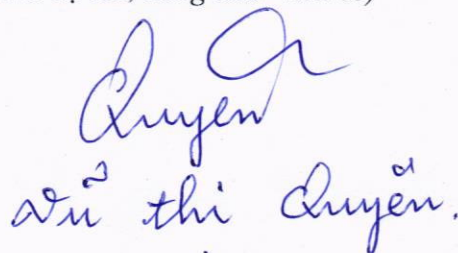 Quyen
Vũ thi Quyên.